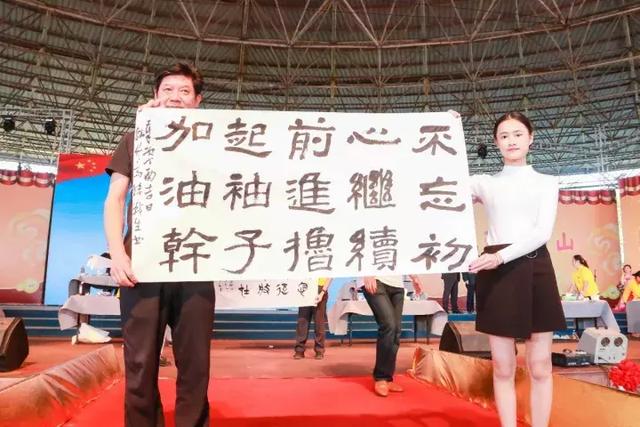 不忘初
心繼續
前進擼
起袖子
加油幹
吉日
山